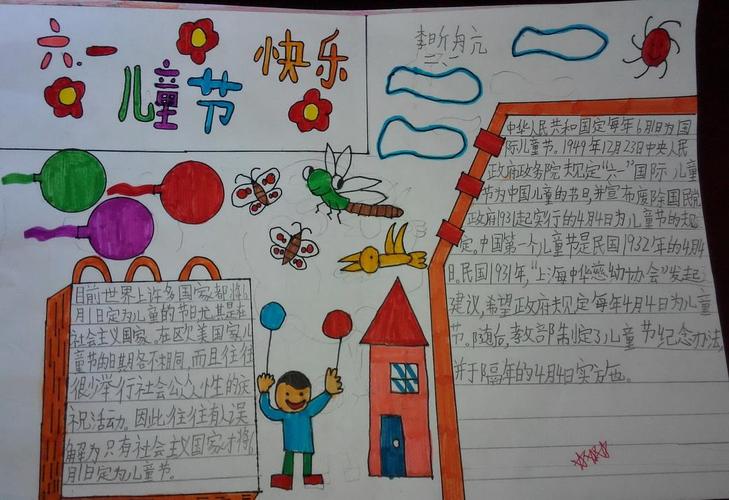 六一
儿童节
快乐
李昕舟元
二、一
目前世界上许多国家都将6
月1日定为儿童的节日尤其是在
社会主义国家。在欧美国家儿
童节的日期各不相同,而且往往
很少举行社会公众性的庆
祝活动。因此往往有人误
解为只有社会主义国家才将6
月1日定为儿童节。
中华人民共和国定每年6月1日为国
际儿童节。1949年12月23日中央人民
政府政务院规定“六一”国际儿童
节为中国儿童的节日,并宣布废除国民党
政府1931起实行的4月4日为儿童节的规
定。中国第一个儿童节是民国1932年的4月4
日。民国1931年,“上海中华慈幼协会”发起
建议,希望政府规定每年4月4日为儿童
节。随后,教部制定了儿童节纪念办法,
并于隔年的4月4日实施。